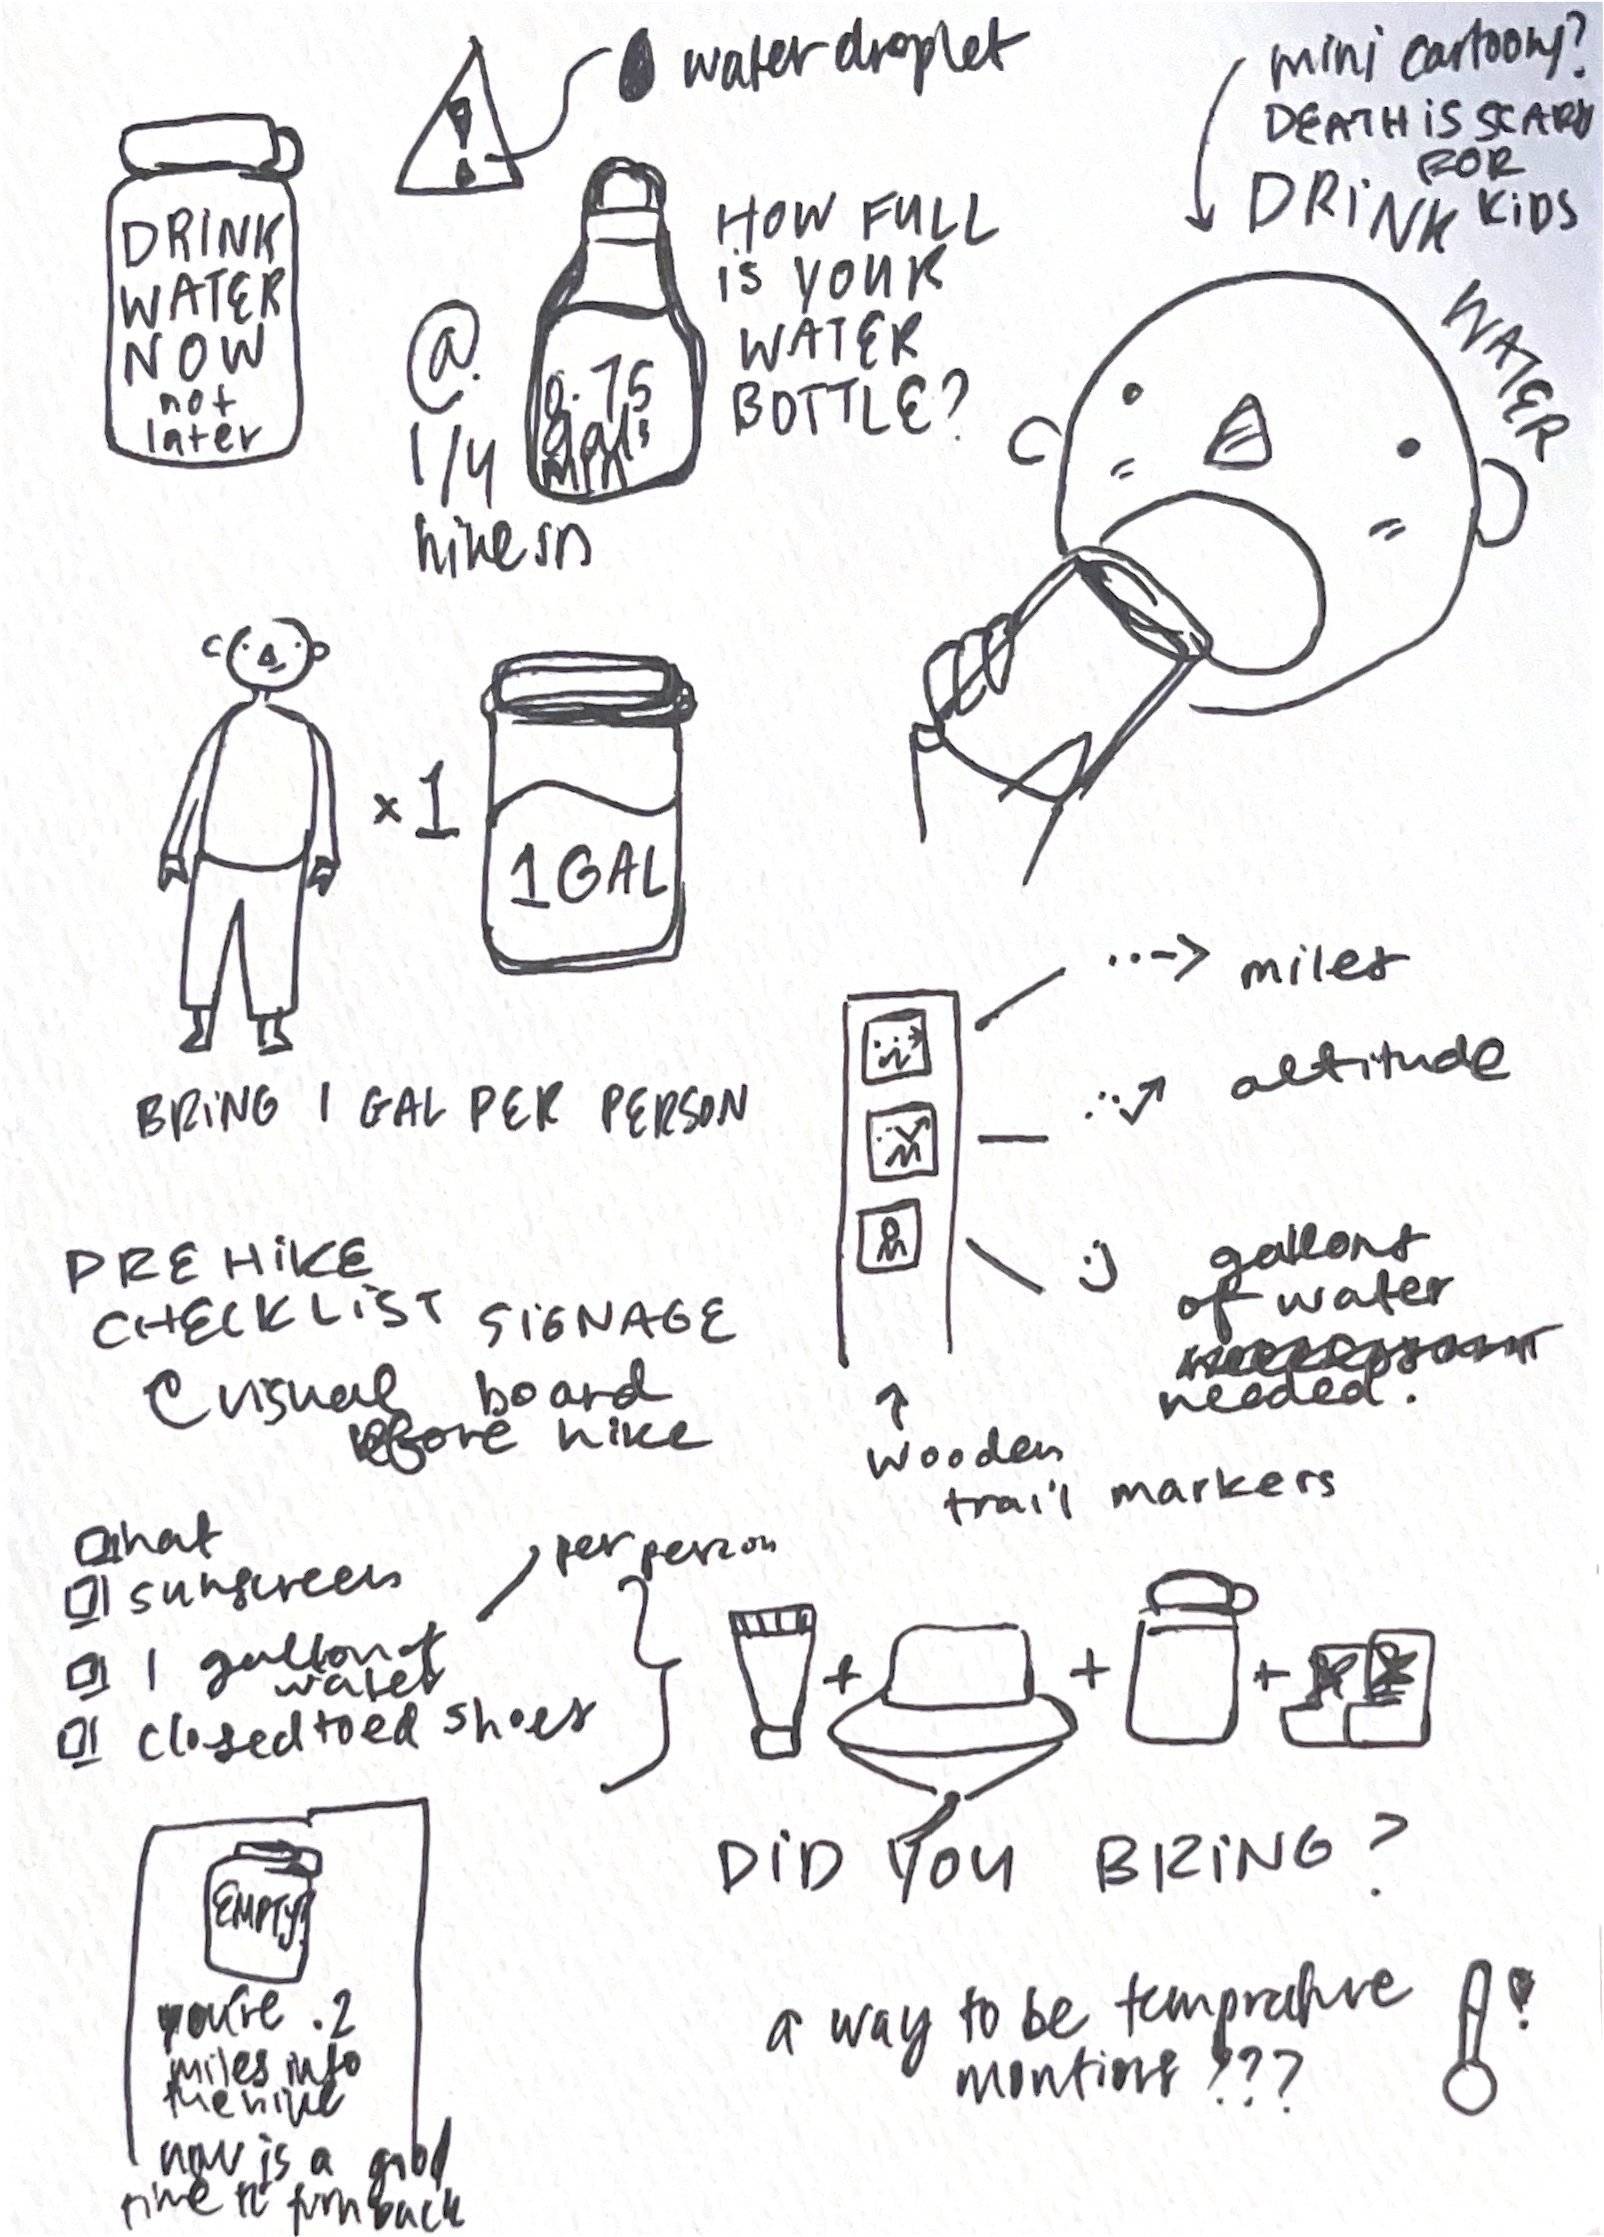 water droplet
mini cartoony?
DEATH IS SCARY
FOR
KIDS
DRINK
WATER
DRINK
WATER
NOW
not
later
HOW FULL
IS YOUR
WATER
BOTTLE?
@
1/4
hike sn
0.75
gals
min
x 1
1 GAL
BRING 1 GAL PER PERSON
miles
altitude
gallons
of water
needed.
wooden
trail markers
PRE HIKE
CHECKLIST SIGNAGE
visual board
before hike
hat
sunscreen
1 gallon of
water
closed toed shoes
per person
+ + +
DID YOU BRING?
EMPTY!
you're .2
miles into
the hike
now is a good
time to turn back
a way to be temprature
montiors ???
!